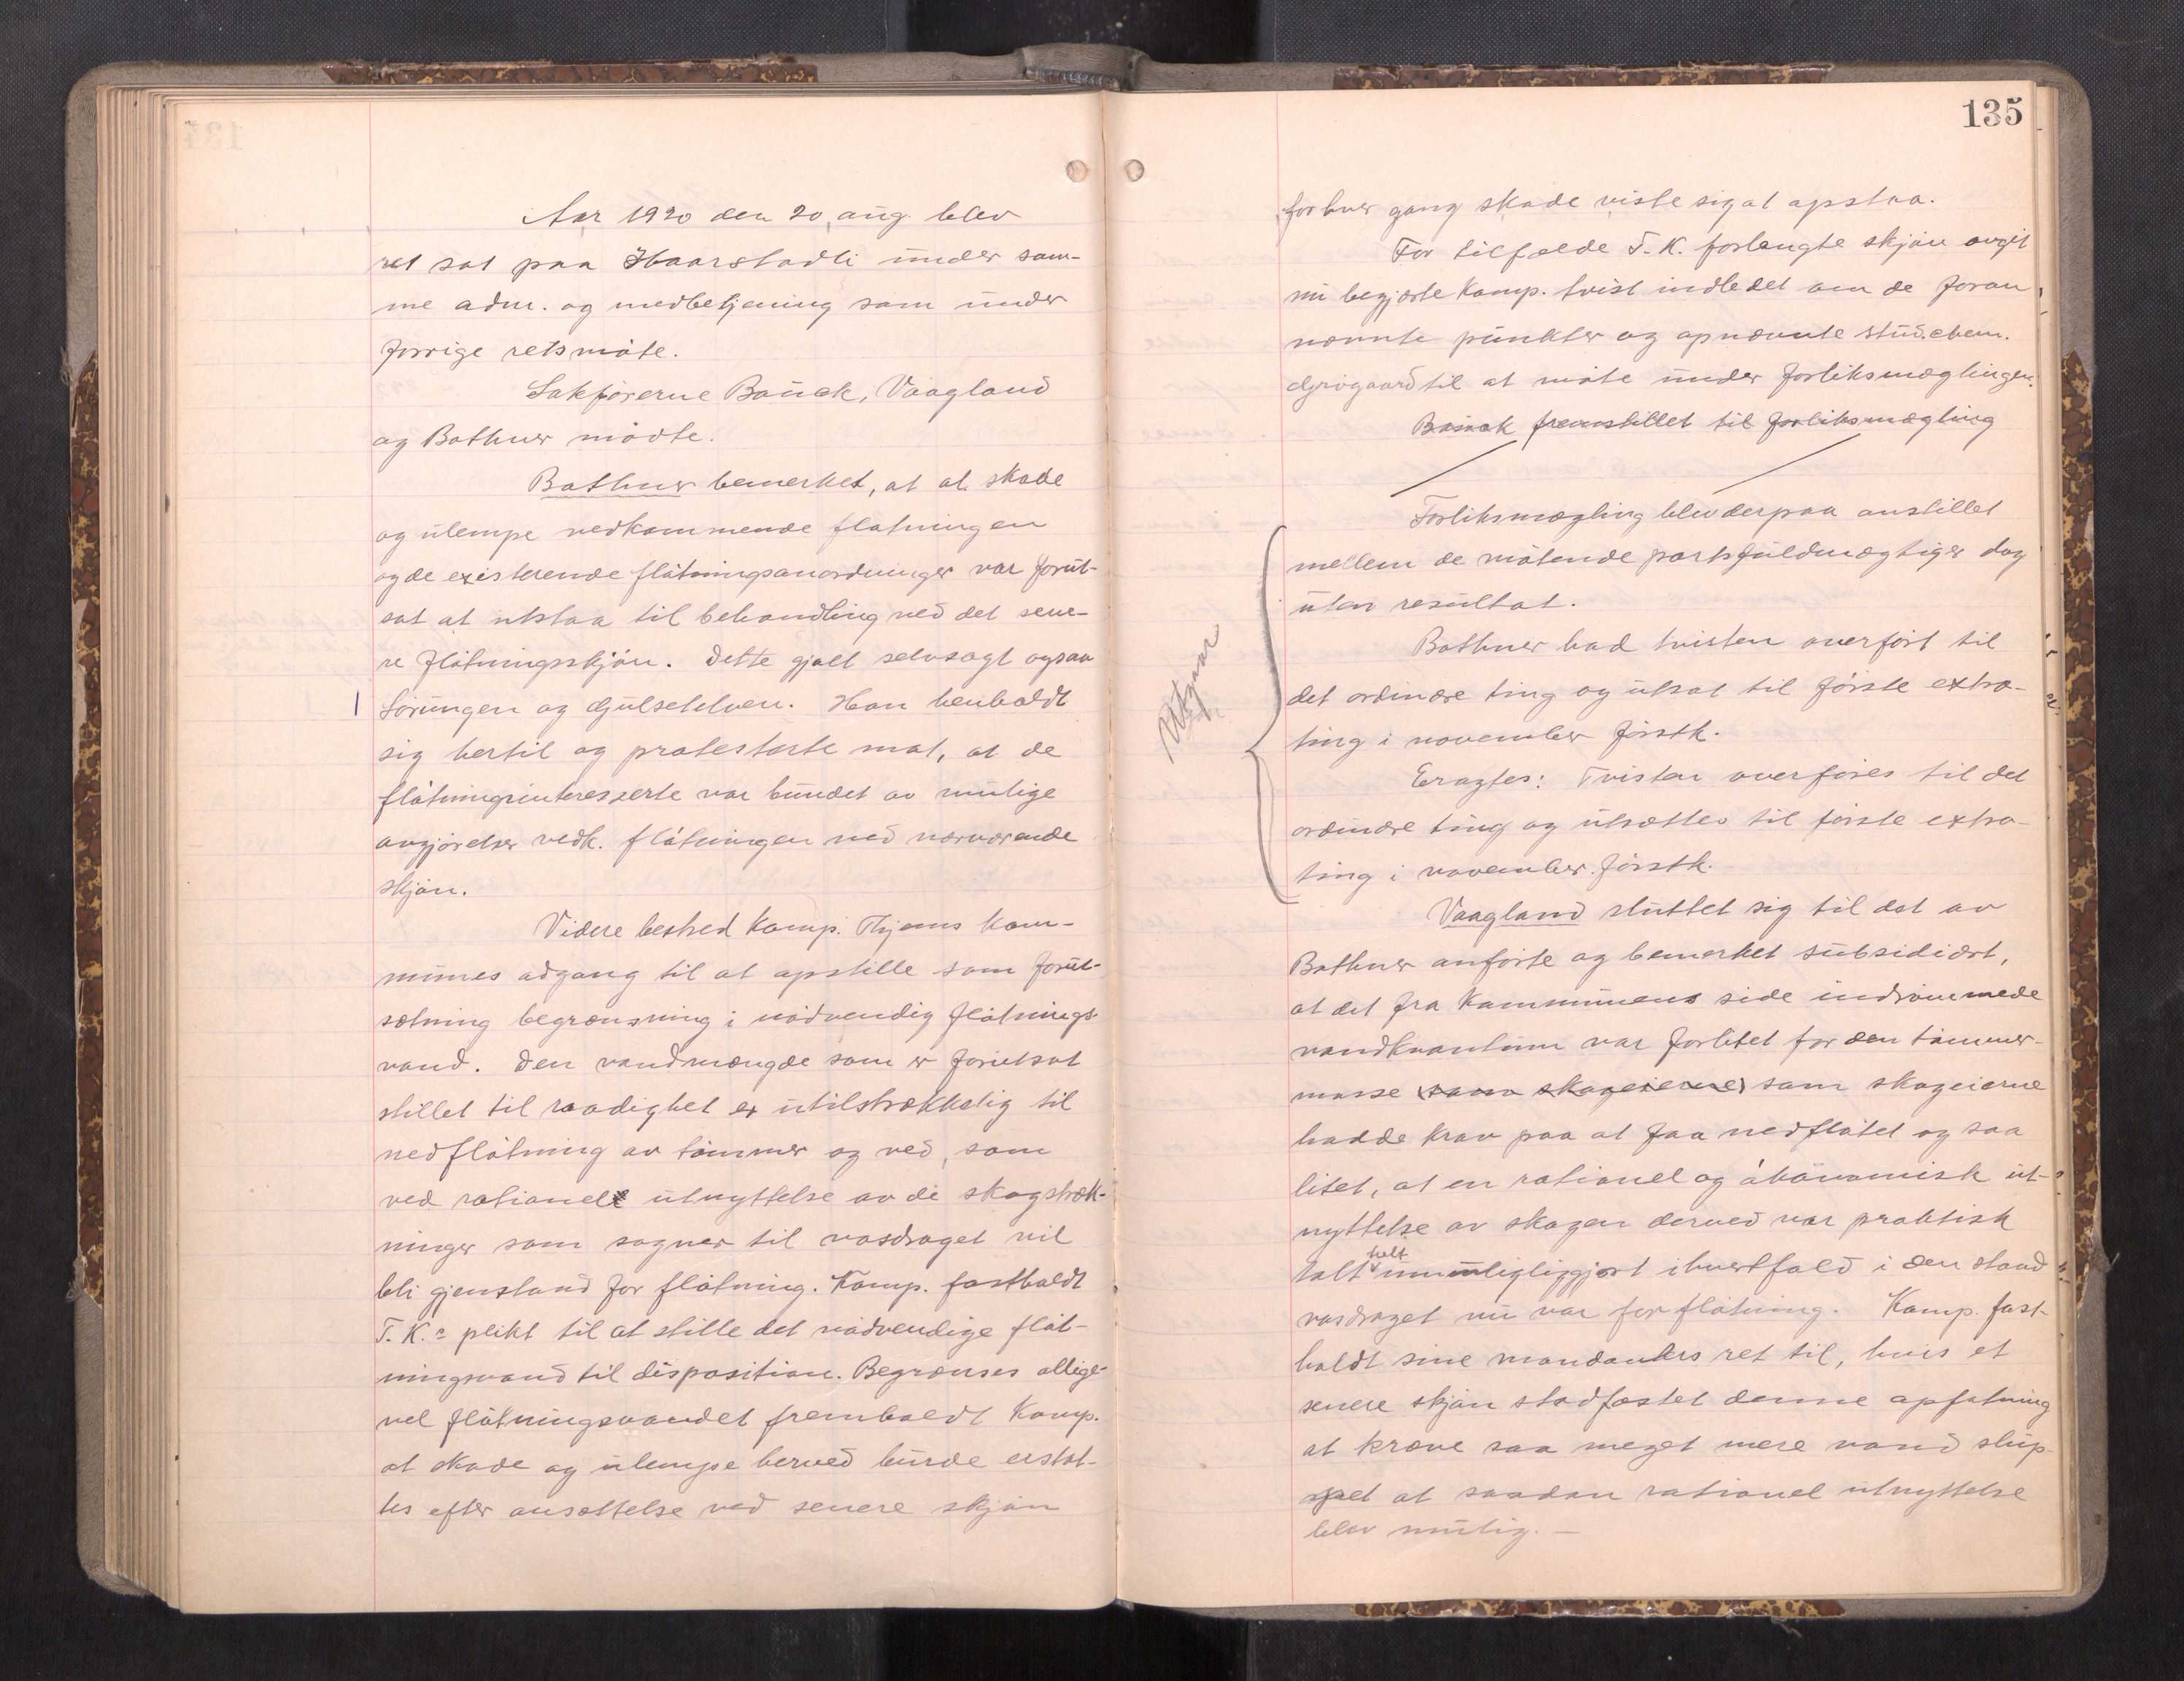 Aar 1920 den 20 aug. blev
ret sat paa Haarstadli under sam-
me adm. og medbetjening som under
forrige retsmøte.
Sakførerne Bauck, Vaagland
og Bothner mødte.
Bothner bemerket, at al skade
og ulempe vedkommende fløtningen
og de existerende fløtningsanordninger var forut-
sat at utstaa til behandling ved det sene-
re fløtningsskjøn. Dette gjalt selvsagt ogsaa
Sørungen og Gulsetelven. Han henholdt
sig hertil og protesterte mot, at de
fløtningsinteresserte var bundet av mulige
avgjørelser vedk. fløtningen ved nærværende
skjøn.
Videre bestred komp. Thjems kom-
munes adgang til at opstille som forut-
sætning begrænsning i nødvendig fløtnings-
vand. Den vandmængde som er forutsat
stillet til raadighet er utilstrækkelig til
nedfløtning av tømmer og ved, som
ved rationel utnyttelse av de skogstræk-
ninger som sogner til vasdraget vil
bli gjenstand for fløtning. Komp. fastholdt
T.K.s plikt til at stille det nødvendige fløt-
ningsvand til disposition. Begrænses allige-
vel fløtningsvandet fremholdt Komp.
at skade og ulempe herved burde erstat-
tes efter ansættelse ved senere skjøn
135
for hver gang skade viste sig at opstaa.
For tilfælde T.K. forlangte skjøn avgit
nu begjærte Komp. tvist indledet om de foran
nævnte punkter og opnævnte stud. chem.
Gjøvaard til at møte under forliksmæglingen.
Bauck fremstillet til forliksmægling
Forliksmægling blev derpaa anstillet
mellem de møtende partsfuldmægtiger dog
uten resultat.
Utgaar
Bothner bad tvisten overført til
det ordinære ting og utsat til første extra-
ting i november førstk.
Eragtes: Tvisten overføres til det
ordinære ting og utsættes til første extra-
ting i november førstk.
Vaagland sluttet sig til det av
Bothner anførte og bemerket subsidiært,
at det fra Kommunens side indrømmede
vandkvantum var forlitet for den tømmer-
masse (som skogeierne) som skogeierne
hadde krav paa at faa nedfløtet og saa
litet, at en rationel og økonomisk ut-
nyttelse av skogen derved var praktisk
talt helt umuligliggjort ihvertfald i den stand
vasdraget nu var for fløtning. Komp. fast-
holdt sine mandanters ret til, hvis et
senere skjøn stadfæstet denne opfatning
at kræve saa meget mere vand slup-
pet at saadan rationel utnyttelse
blev mulig. -